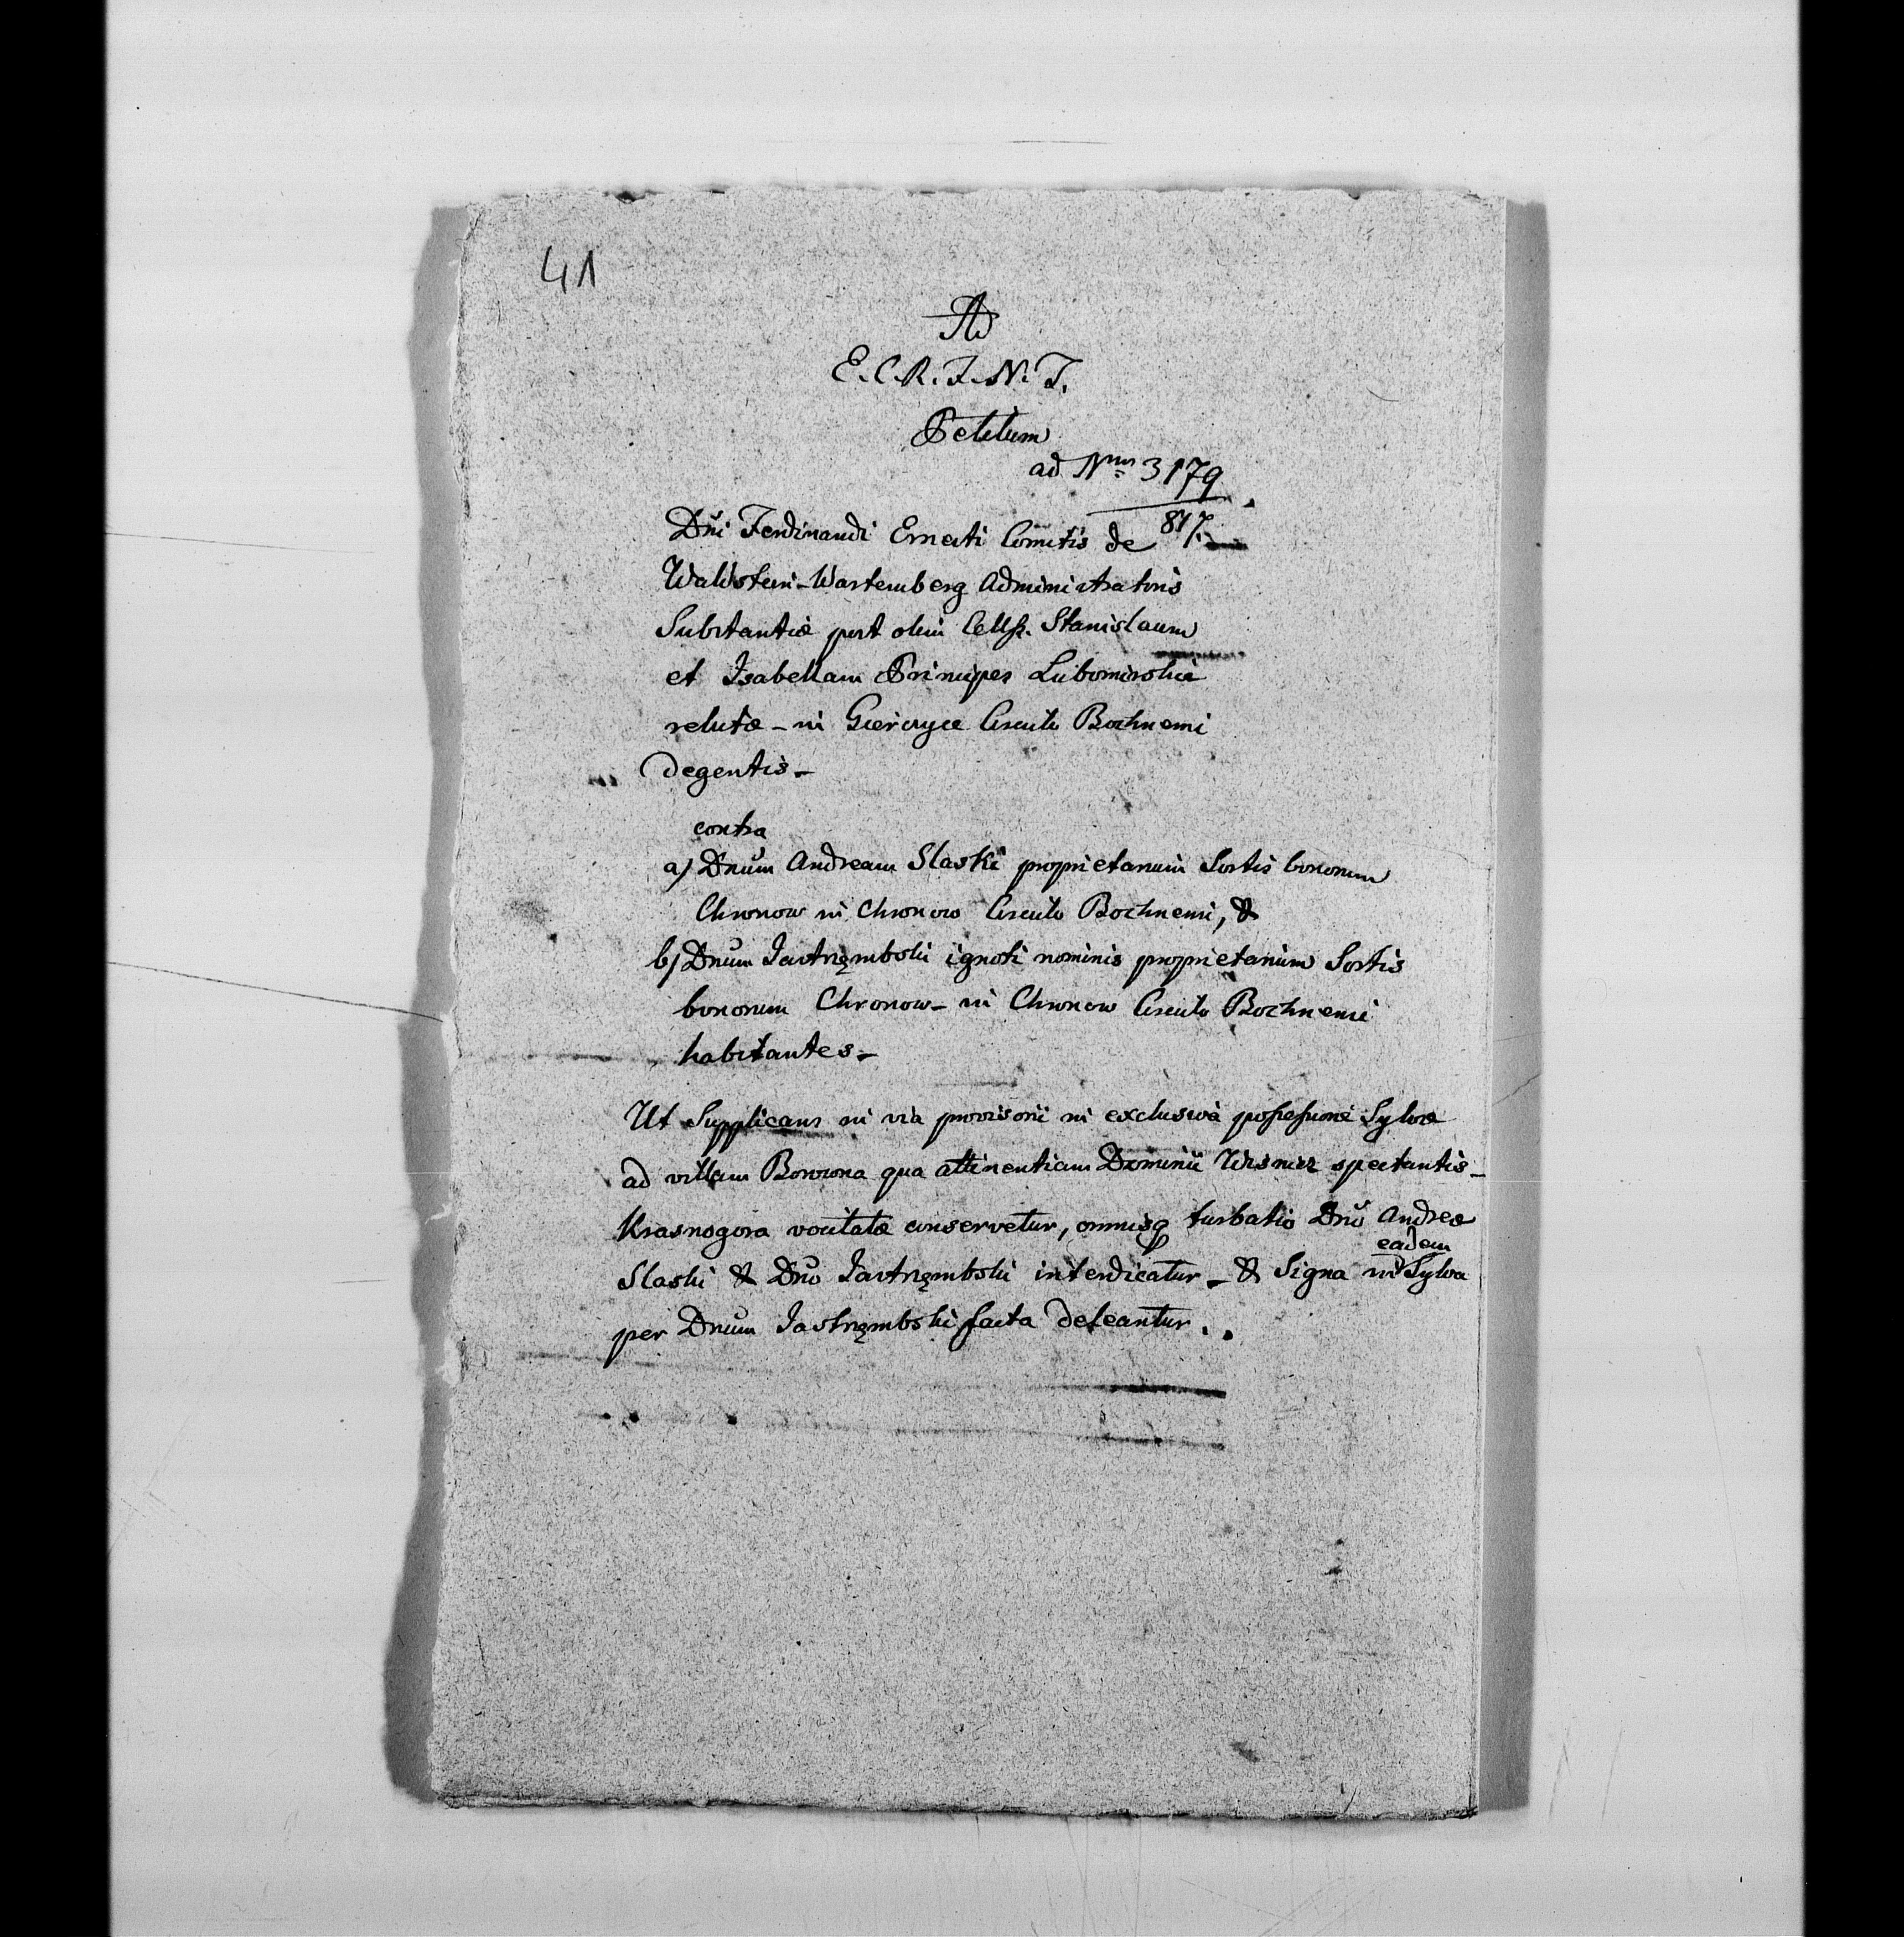 41
Ad
E. C. R. F. N. T.
Petitum
ad Nrum 3179
817.
Dni Ferdinandi Ernesti Comitis de
Waldstein-Wartemberg Administratoris
Substantiæ post olim Cellss. Stanislaum
et Isabellam Principes Lubomirskie
relictæ - in Gierczyce Circulo Bochnensi
degentis -
contra
a) Dnum Andream Slaski proprietarium Sortis bonorum
Chronow in Chronow Circulo Bochnensi, &
b) Dnum Jastrzembski ignoti nominis proprietarium Sortis
bonorum Chronow - in Chronow Circulo Bochnensi
habitantes -
Ut Supplicans in via provisorii in exclusivà possessione Sylvæ
ad villam Borowna qua attinentiam Dominii Wisnicz spectantis -
Krasnogora vocitatæ conservetur, omnisq turbatio Dnō Andreæ
Slaski & Dnō Jastrzembski interdicatur - & Signa in eadem Sylva
per Dnum Jastrzembski facta deleantur..